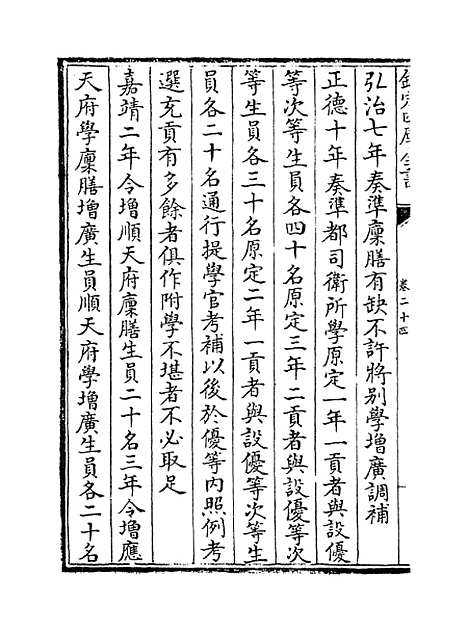 欽定四庫全書
卷二十四
弘治七年奏準廩膳有缺不許將别學增廣調補
正德十年奏準都司衛所學原定一年一貢者與設優
等次等生員各四十名原定三年二貢者與設優等次
等生員各三十名原定二年一貢者與設優等次等生
員各二十名通行提學官考補以後於優等内照例考
選充貢有多餘者俱作附學不堪者不必取足
嘉靖二年令增順天府廩膳生員二十名三年令增應
天府學廩膳增廣生員順天府學增廣生員各二十名